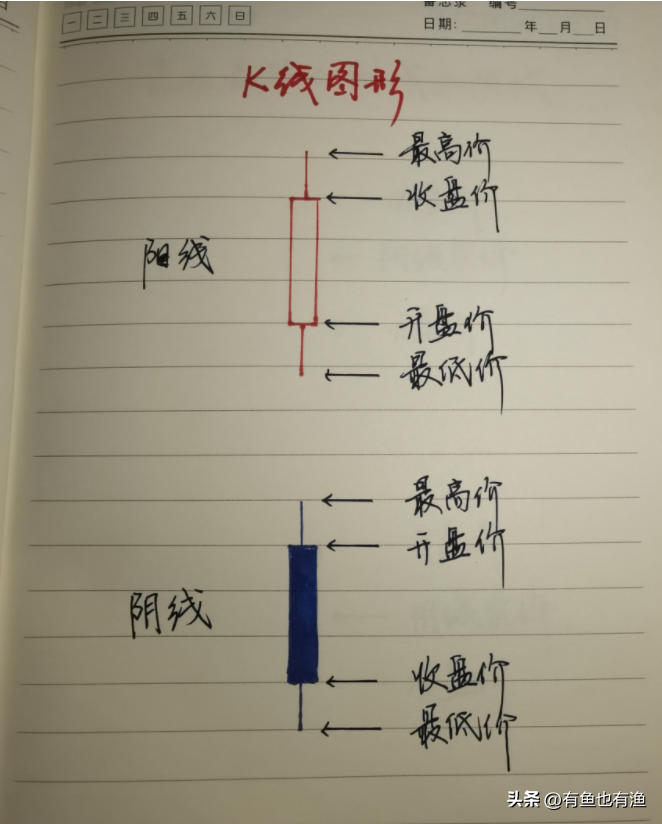 一 二 三 四 五 六 日
备忘录 编号
日期: 年 月 日
K线图形
最高价
收盘价
阳线
开盘价
最低价
最高价
开盘价
阴线
收盘价
最低价
头条 @有鱼也有渔